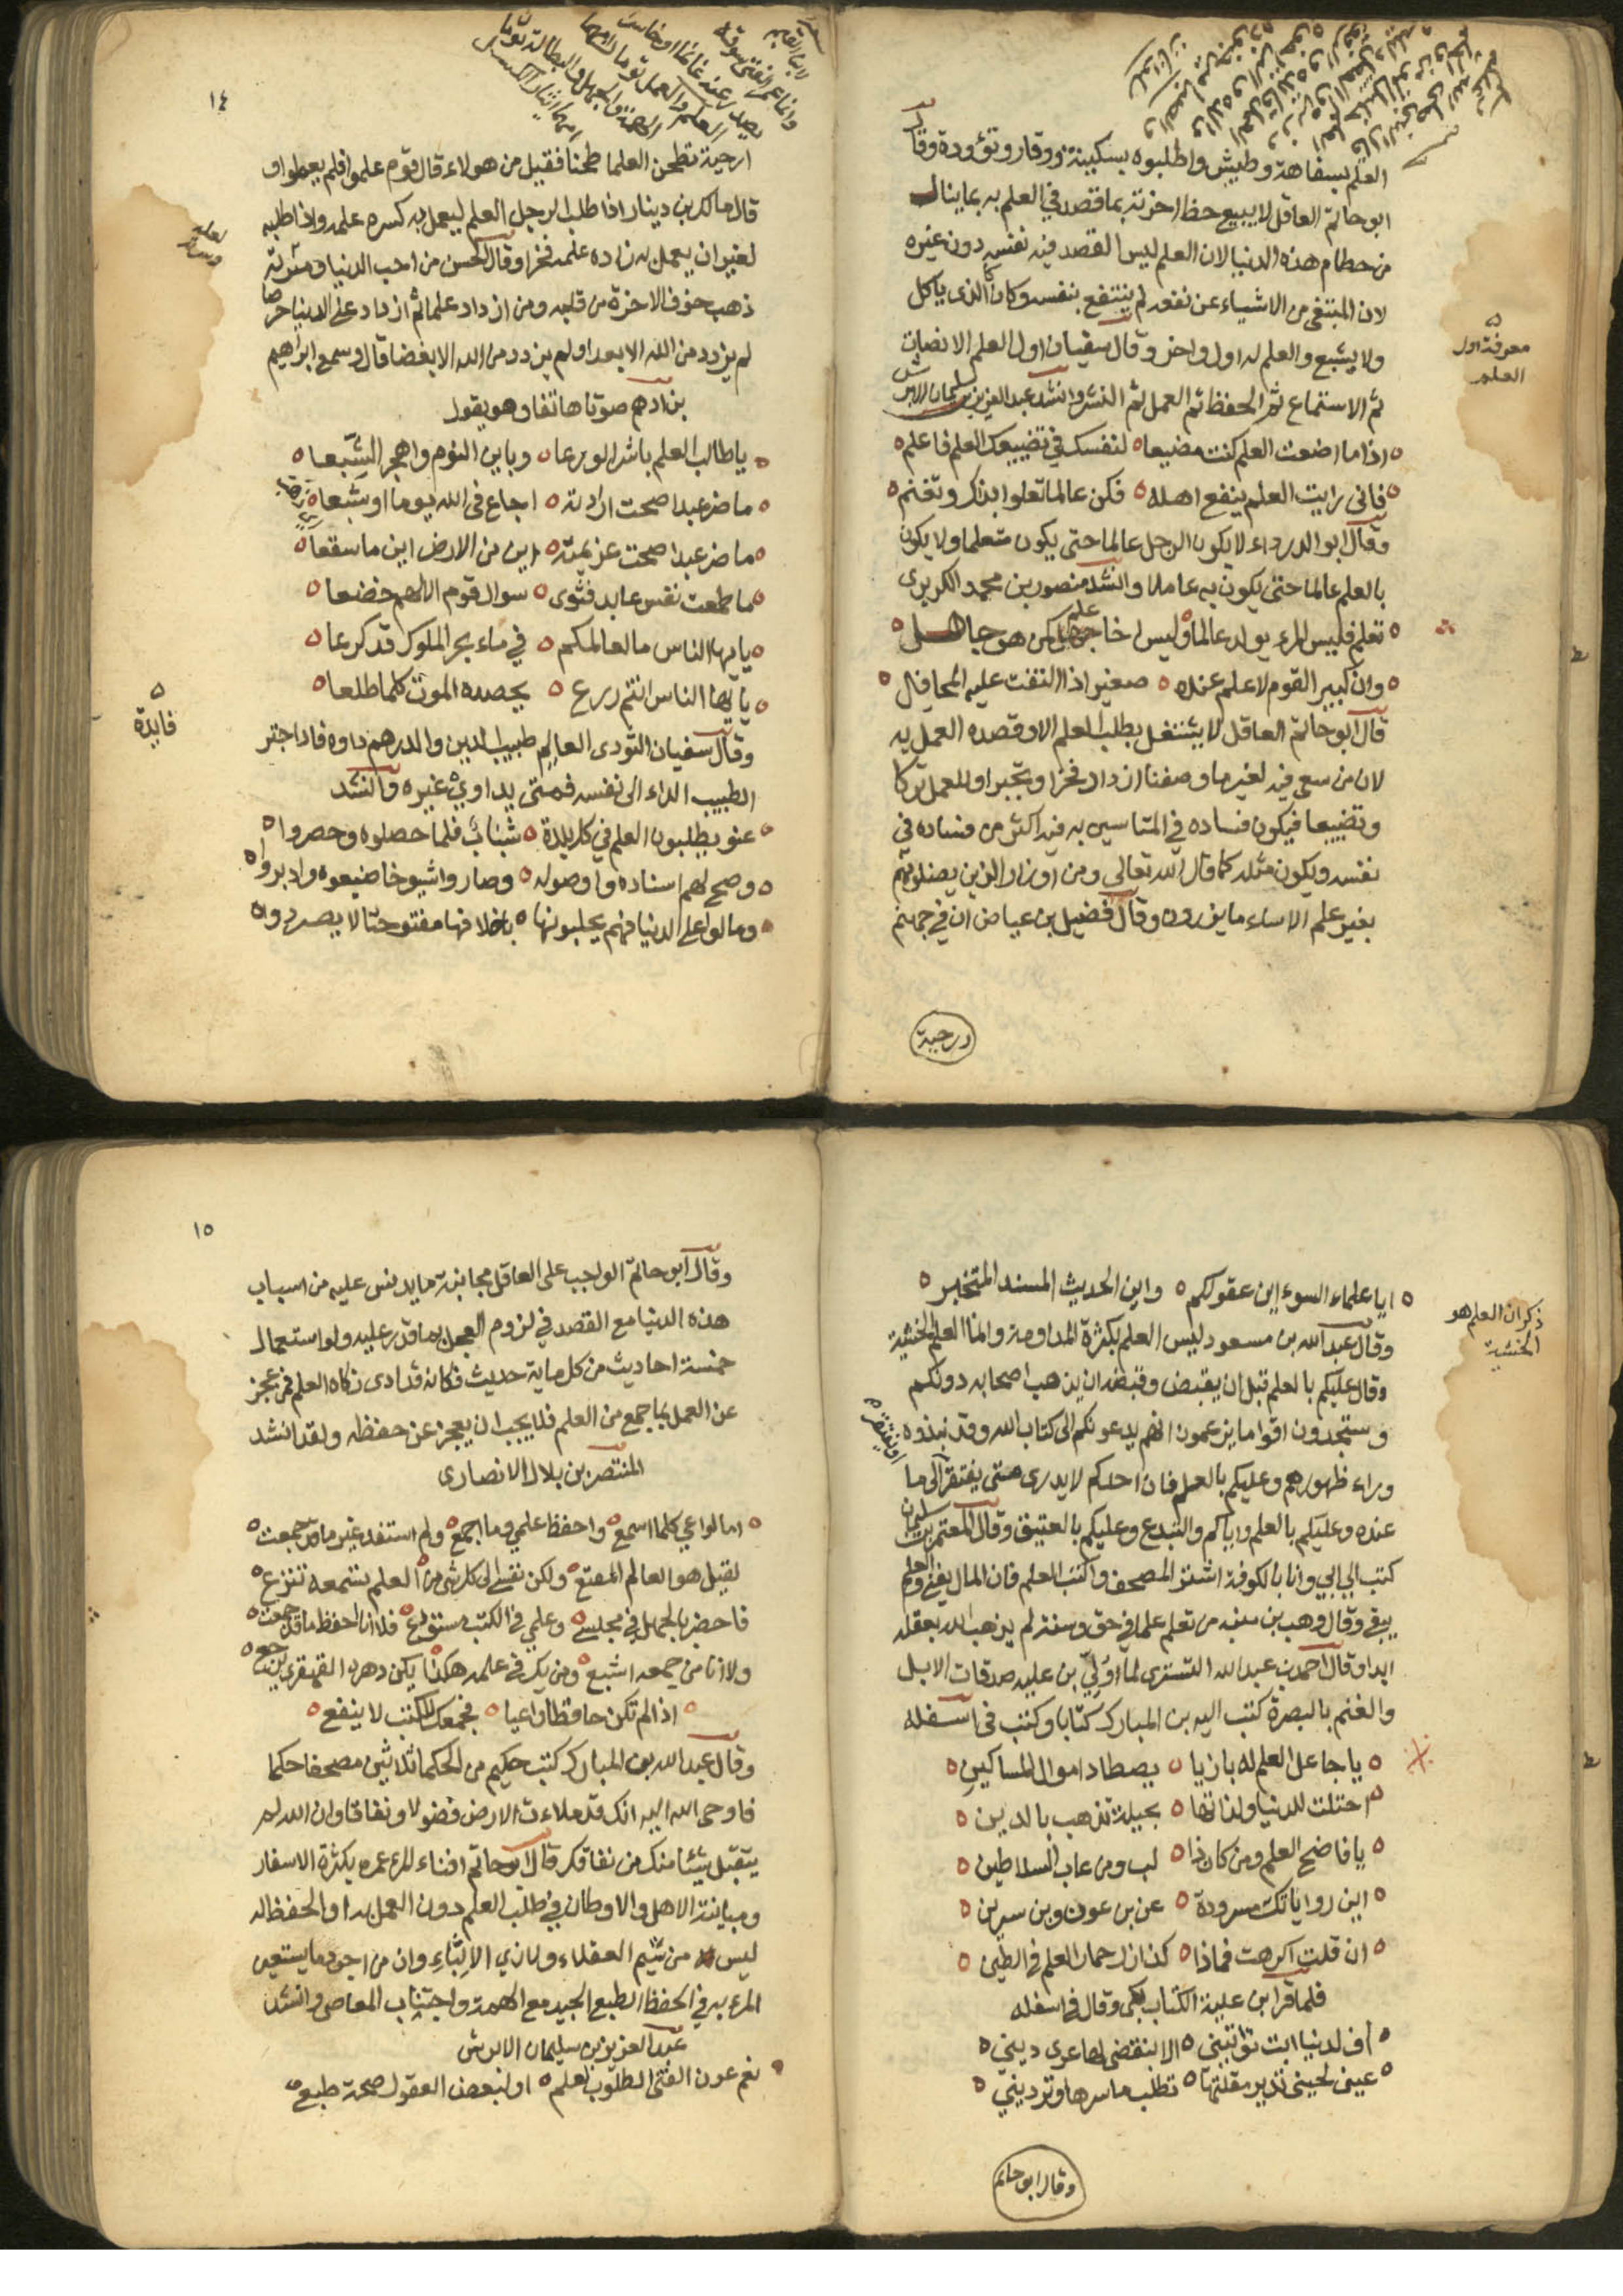 العلم بسفاهة وطيش واطلبوه بسكينة ووقار وتؤودة وقال
ابو حاتم العاقل لا يبيع حظ اخرته بما قصد في العلم به بما ينال
من حطام هذه الدنيا لان العلم ليس القصد فيه نفسه دون غيره
لان المبتغى من الاشياء عن نفعه لم ينتفع بنفسه وكان كالذي ياكل
ولا يشبع والعلم له اول واخر وقال سفيان اول العلم الانصات
ثم الاستماع ثم الحفظ ثم العمل ثم النشر وانشد عبد العزيز بن سليمان الابرش
اذا ما اضعت العلم كنت مضيعا ٥ لنفسك في تضييعك العلم فاعلم ٥
فاني رايت العلم ينفع اهله ٥ فكن عالما تعلوا بذكر وتغنم ٥
وقال ابو الدرداء لا يكون الرجل عالما حتى يكون متعلما ولا يكون
بالعلم عالما حتى يكون به عاملا وانشد منصور بن محمد الكريزي
تعلم فليس المرء يولد عالما ٥ وليس اخا علم كمن هو جاهل ٥
وان كبير القوم لا علم عنده ٥ صغير اذا التفت عليه المحافل ٥
قال ابو حاتم العاقل لا يشتغل بطلب العلم الا وقصده العمل به
لان من سعى فيه لغير ما وصفنا ازداد فخرا وتجبرا وللعمل تركا
وتضييعا فيكون فساده في المتاسين به فيه اكثر من فساده في
نفسه ويكون مثله كما قال الله تعالى ومن اوزار الذين يضلونهم
بغير علم الا ساء ما يزرون وقال فضيل بن عياض ان في جهنم
معرفة اول
العلم
ارحية
١٤
ارحية تطحن العلما طحنا فقيل من هولاء قال قوم علموا فلم يعملوا
قال مالك بن دينار اذا طلب الرجل العلم ليعمل به كسره علمه واذا طلبه
لغير ان يعمل به زاده علمه فخرا وقال الحسن من احب الدنيا وسرته
ذهب خوف الاخرة من قلبه ومن ازداد علما ثم ازداد على الدنيا حرصا
لم يزدد من الله الا بعدا ولم يزدد من الله الا بغضا قال وسمع ابراهيم
بن ادهم صوتا هاتفا وهو يقول
يا طالب العلم باشر الورعا ٥ وباين النوم واهجر الشبعا ٥
ما ضر عبدا صحت ارادته ٥ اجاع في الله يوما او شبعا ٥
ما ضر عبدا صحت عزيمته ٥ اين من الارض اين ما سقعا ٥
ما طمعت نفس عابد فثوى ٥ سوال قوم الا لهم خضعا ٥
يا ايها الناس ما لعالمكم ٥ في ماء بحر الملوك قد كرعا ٥
يا ايها الناس انتم زرع ٥ يحصده الموت كلما طلعا ٥
وقال سفيان الثوري العالم طبيب الدين والدرهم داوه فاذا اجتر
الطبيب الداء الى نفسه فمتى يداوي غيره وانشد
عنو يطلبون العلم في كل بلدة ٥ شبابا فلما حصلوه وحصروا ٥
وصح لهم اسناده واوصوله ٥ وصاروا شيوخا ضيعوه وادبروا ٥
ومالوا على الدنيا فهم يحلبونها ٥ باخلافها مفتوحتا لا يصرر ٥
فايدة
ايا علماء السوء اين عقولكم ٥ واين الحديث المسند المتخير ٥
وقال عبد الله بن مسعود ليس العلم بكثرة المداومة وانما العلم الخشية
وقال عليكم بالعلم قبل ان يقبض وقبضه ان يذهب اصحابه دونكم
وستجدون اقواما يزعمون انهم يدعونكم الى كتاب الله وقد نبذوه
وراء ظهورهم وعليكم بالعلم فان احدكم لا يدري متى يفتقر الى ما
عنده وعليكم بالعلم واياكم والتبدع وعليكم بالعتيق وقال المعتمر بن سليمان
كتب الي ابي وانا بالكوفة اشتر المصحف واكتب العلم فان المال يفنى والعلم
يبقى وقال وهب بن منبه من تعلم علما في حق وسنة لم يذهب الله بعقله
ابدا وقال احمد بن عبد الله التستري لما ولي بن علية صدقات الابل
والغنم بالبصرة كتب اليه بن المبارك كتابا وكتب في اسفله
يا جاعل العلم له بازيا ٥ يصطاد اموال المساكين ٥
احتلت للدنيا ولذاتها ٥ بحيلة تذهب بالدين ٥
يا فاضح العلم ومن كان ذا ٥ لب ومن عاب السلاطين ٥
اين رواياتك مسرودة ٥ عن بن عون وبن سيرين ٥
ان قلت اكرهت فماذا ٥ كذا زل حمار العلم في الطين ٥
فلما قرا بن علية الكتاب بكى وقال في اسفله
اف لدنيا ابت تواتيني ٥ الا بنقضي لها عرى ديني ٥
عيني لحيني تدير مقلتها ٥ تطلب ما سرها وترديني ٥
ذكر ان العلم هو
الخشية
وقال ابو حاتم
١٥
وقال ابو حاتم الواجب على العاقل مجانبة ما يدنس عليه من اسباب
هذه الدنيا مع القصد في لزوم العمل بما قدر عليه ولو استعمال
خمسة احاديث من كل ماية حديث فكانه قد ادى زكاة العلم فمن عجز
عن العمل بما جمع من العلم فلا يجب ان يعجز عن حفظه ولقد انشد
المنتصر بن بلال الانصاري
اما لو اعي كلما اسمع ٥ واحفظ علمي وما اجمع ٥ ولم استفد غير ما قد جمعت ٥
لقيل هو العالم المقنع ٥ ولكن نفسي الى كل شيء من العلم تسمعه تنزع ٥
فاحضر بالجهل في مجلسي ٥ وعلمي في الكتب مستودع ٥ فلا انا احفظ ما قد جمعت ٥
ولا انا من جمعه اشبع ٥ ومن يك في علمه هكذا يكن دهره القهقرى يرجع ٥
اذا لم تكن حافظا واعيا ٥ فجمعك للكتب لا ينفع ٥
وقال عبد الله بن المبارك كتب حكيم من الحكما ثلاثين مصحفا حكما
فاوحى الله اليه انك قد ملاءت الارض فضولا ونفاقا وان الله لم
يتقبل شيئا منك من نفاقك قال ابو حاتم افناء المرء عمره بكثرة الاسفار
ومباينة الاهل والاوطان في طلب العلم دون العمل به او الحفظ له
ليس من شيم العقلاء ولا زي الالباء وان من اجود ما يستعين
المرء به في الحفظ الطبع الجيد مع الهمة واجتناب المعاصي وانشد
عبد العزيز بن سليمان الابرش
نعم عون الفتى الطلوب لعلم ٥ او لبعض العقول صحة طبع ٥